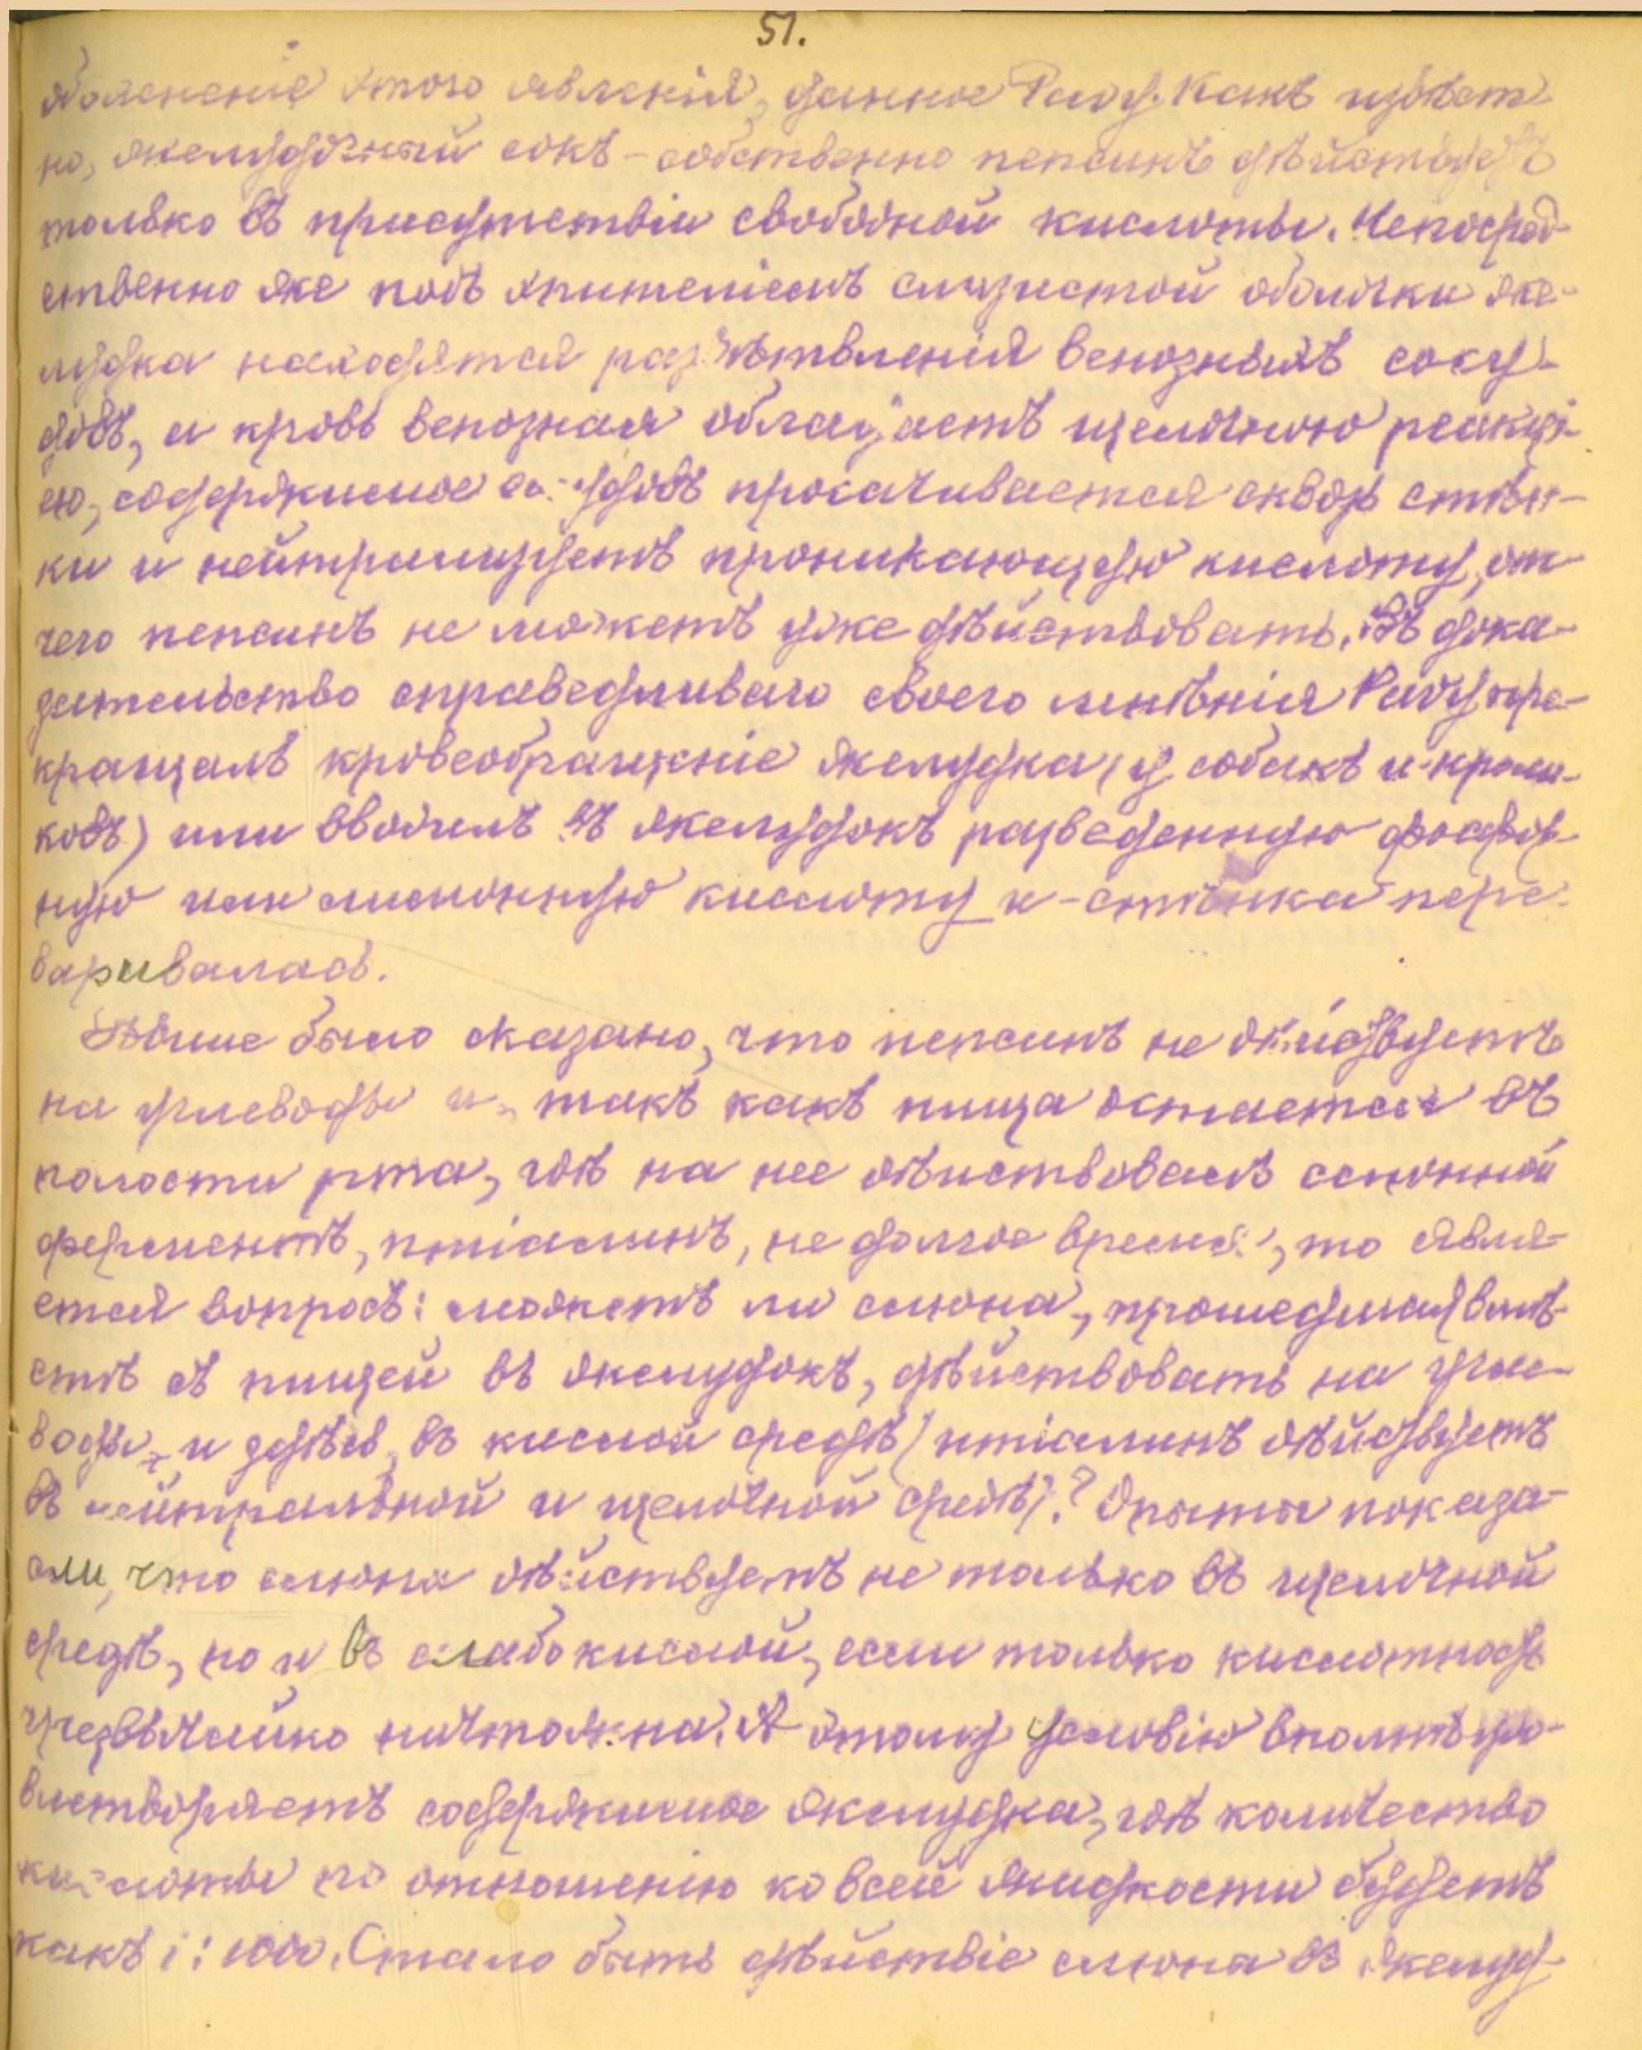 51.
объясненіе этого явленія, данное Pavy. Какъ извѣст-
но, желудочный сокъ – собственно пепсинъ дѣйствуетъ
только въ присутствіи свободной кислоты. Непосред-
ственно же подъ эпителіемъ слизистой оболочки же-
лудка находятся развѣтвленія венозныхъ сосу-
довъ, и кровь венозная обладаетъ щелочною реакці-
ею, содержимое сосудовъ просачивается сквозь стѣн-
ки и нейтрализуетъ проникающую кислоту, от
чего пепсинъ не можетъ уже дѣйствовать. Въ дока-
зательство справедливаго своего мнѣнія Pavy пре-
кращалъ кровеобращеніе желудка (у собакъ и кроли-
ковъ) или вводилъ въ желудокъ разведенную фосфор-
ную или лимонную кислоту и – стѣнка пере-
варивалась.
Выше было сказано, что пепсинъ не дѣйствуетъ
на углеводы и, такъ какъ пища остается въ
полости рта, гдѣ на нее дѣйствовалъ слюнной
ферментъ, птіалинъ, не долгое время, то явля-
ется вопросъ: можетъ ли слюна, прошедшая вмѣ-
стѣ съ пищей въ желудокъ, дѣйствовать на угле-
воды и здѣсь, въ кислой средѣ (птіалинъ дѣйствуетъ
въ нейтральной и щелочной средѣ)? Опыты показа-
ли, что слюна дѣйствуетъ не только въ щелочной
средѣ, но и въ слабокислой, если только кислотность
чрезвычайно ничтожна. А этому условію вполнѣ удо-
влетворяетъ содержимое желудка, гдѣ количество
кислоты по отношенію ко всей жидкости будетъ
какъ 1 : 1000. Стало быть дѣйствіе слюна въ желуд-